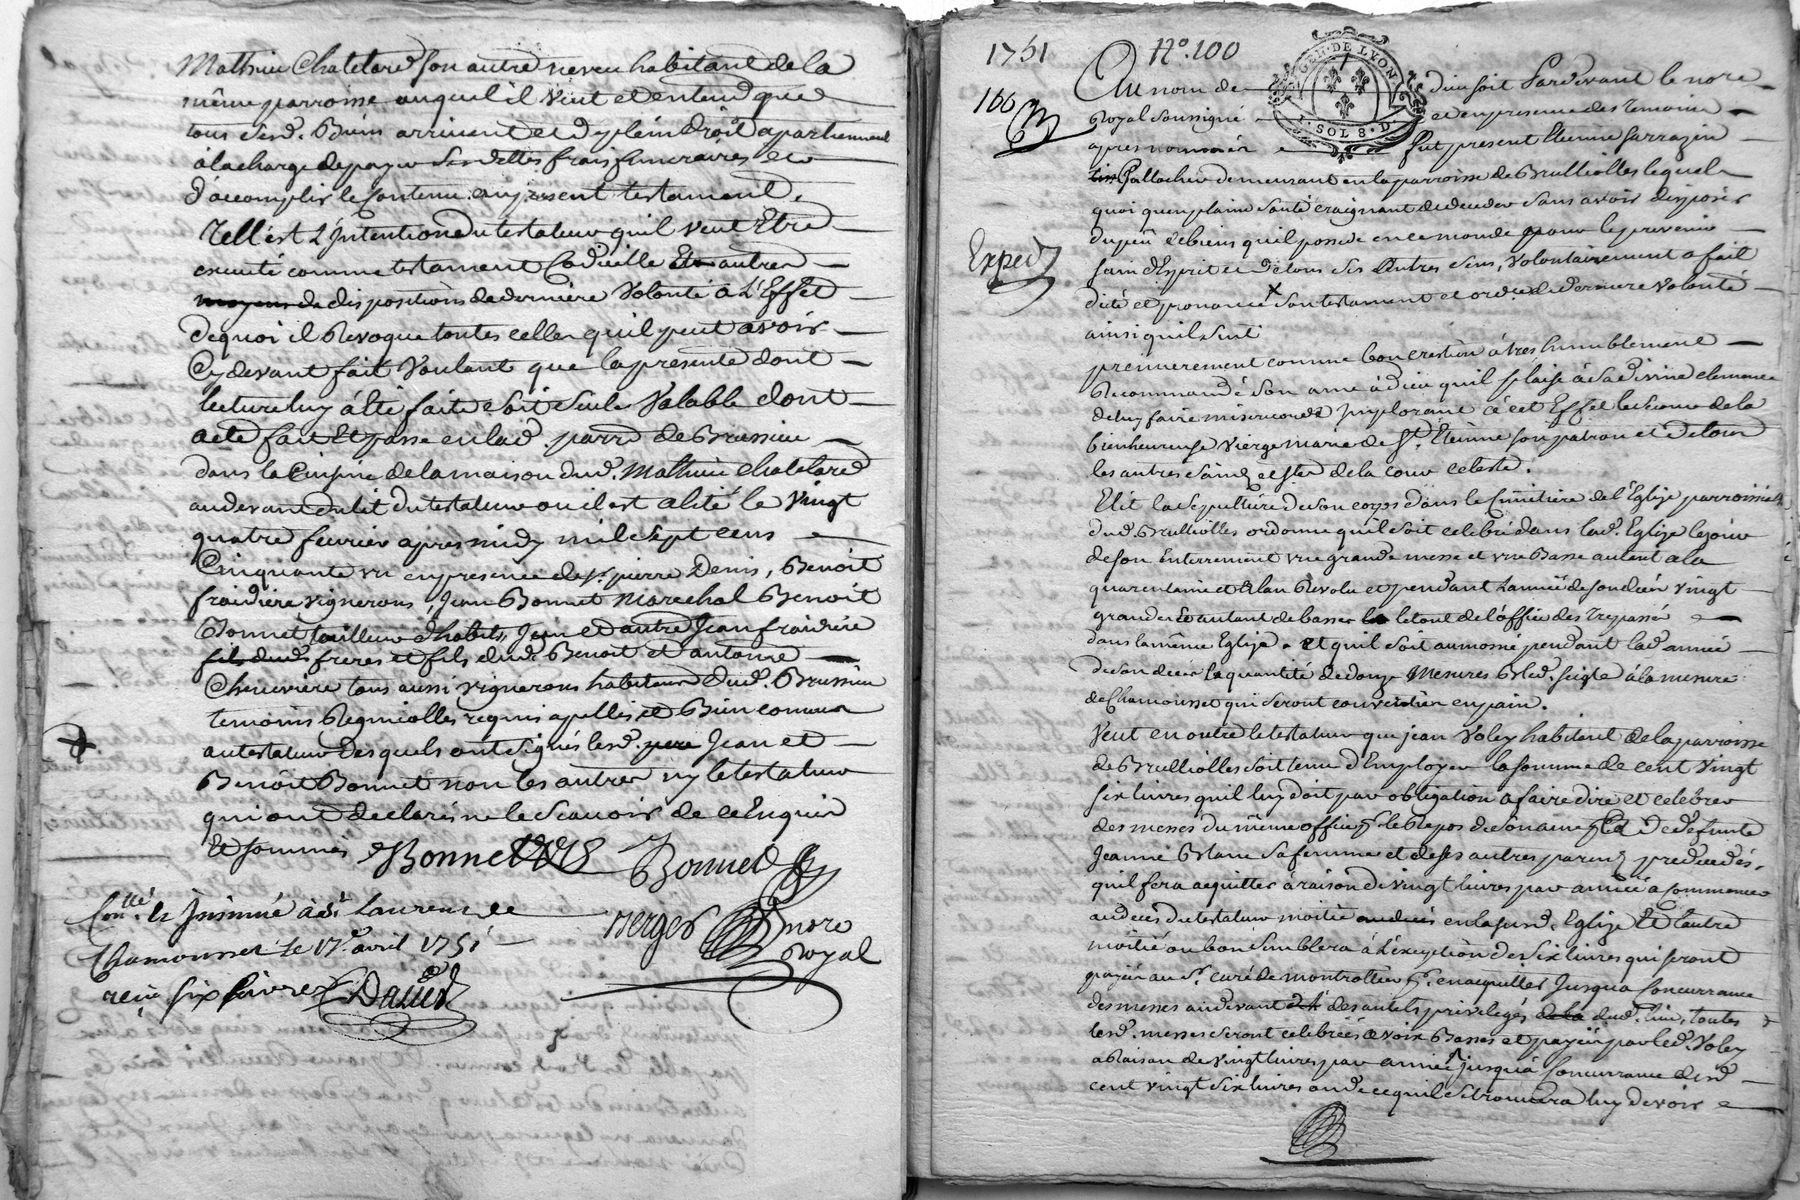 Mathieu Chatelard son autre neveu habitant de la
même parroisse auquel il veut et entend que
tous sesd. Biens arrivent et de plein droit apartiennent
à la charge de payer ses dettes frais funeraires et
d'accomplir le contenu au present testament.
Tell est L'Intention du testateur qu'il veut Etre
executé comme testament Codicille et autres
moyens de dispositions de derniere Volonté a L'Effet
de quoi il Revoque toutes celles qu'il peut avoir
Cy devant fait Voulant que la presente dont
lecture luy a été faite soit seule Valable dont
acte fait et passé en lad. parr. de Brussieu
dans la Cuisine de la maison dud. Mathieu Chatelard
au devant du lit du testateur ou il est alité le Vingt
quatre fevrier apres midy mil sept cens
Cinquante un en presence de Sr. pierre Denis, Benoit
fraidiere vignerons, Jean Bonnet Marechal Benoit
Bonnet tailleur d'habits, Jean et autre Jean fraidiere
fils dud. freres et fils dud. Benoit et antoine
Cheneviere tous aussi vignerons habitans dud. Brussieu
temoins Regnicolles requis apellés et Bien connus
au testateur desquels ont signés lesd. Jean et
Benoit Bonnet non les autres ny le testateur
qui ont declarés ne le scavoir de ce Enquis
Et sommés Bonnet Bonnet
Berger nore
Royal
Conllé. et Insinué à St. Laurens de
Chamousset le 17e. avril 1751
reçu six livres
1751 No. 100
100
GEN. DE LYON
1. SOL 8. D
Au nom de dieu soit Pardevant le nore
Royal soussigné et en presence des temoins
apres nommés fut present Etienne Sarrazin
demeurant en la parroisse de Brullioles lequel
quoi qu'en plaine santé craignant de deceder sans avoir disposer
du peu de biens qu'il possede en ce monde pour le prevenir
Exped
sain d'Esprit et de tous ses Autres sens, volontairement a fait
dicté et prononcé son testament et ordce. de derniere volonté
ainsi qu'il suit
premierement comme bon crestien a tres humblement
Recommandé son ame à dieu qu'il plaise à sa divine clemence
de luy faire misericorde Implorant à cet Effet le secour de la
bienheureuse Vierge marie de St. Etienne son patron et de tous
les autres saints et stes de la cour celeste.
Elit la sepulture de son corps dans le Cimetiere de l'Eglise parroissialle
dud. Brullioles ordonne qu'il soit celebré dans lad. Eglise le jour
de son Enterrement une grande messe et une Basse autant a la
quarantaine et à l'an Revolu et pendant l'année de son deces vingt
grandes et autant de basses le tout de l'office des trepassés
dans la même Eglise. Et qu'il soit aumoné pendant lad. année
de son deces la quantité de douze Mesures Bled. seigle à la mesure
de Chamousset qui seront converties en pain.
Veut en outre le testateur que jean Voley habitant de la parroisse
de Brullioles soit tenu d'Employer la somme de cent vingt
six livres qu'il luy doit par obligation a faire dire et celebrer
des messes du même office pr. le Repos de son ame et de defunte
Jeanne Blanc sa femme et de ses autres parens predecedés,
qu'il fera acquitter à raison de vingt livres par année a commencer
au deces du testateur moitié en lasusd. Eglise et l'autre
moitié ou bon semblera à L'exception de six livres qui seront
payés au Sr. curé de montrottier pr. en acquitter Jusqua concurrance
des messes au devant des autels privilegés dud. lieu, toutes
lesd. messes seront celebrées à voix Basses et payés par led. Voley
a Raison de vingt livres par année jusqu'à concurrance desd.
cent vingt six livres ou de ce qu'il se trouvera luy devoir